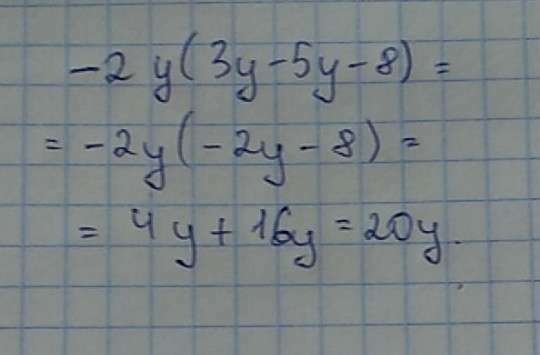 -2y(3y-5y-8)=
=-2y(-2y-8)=
=4y+16y=20y.